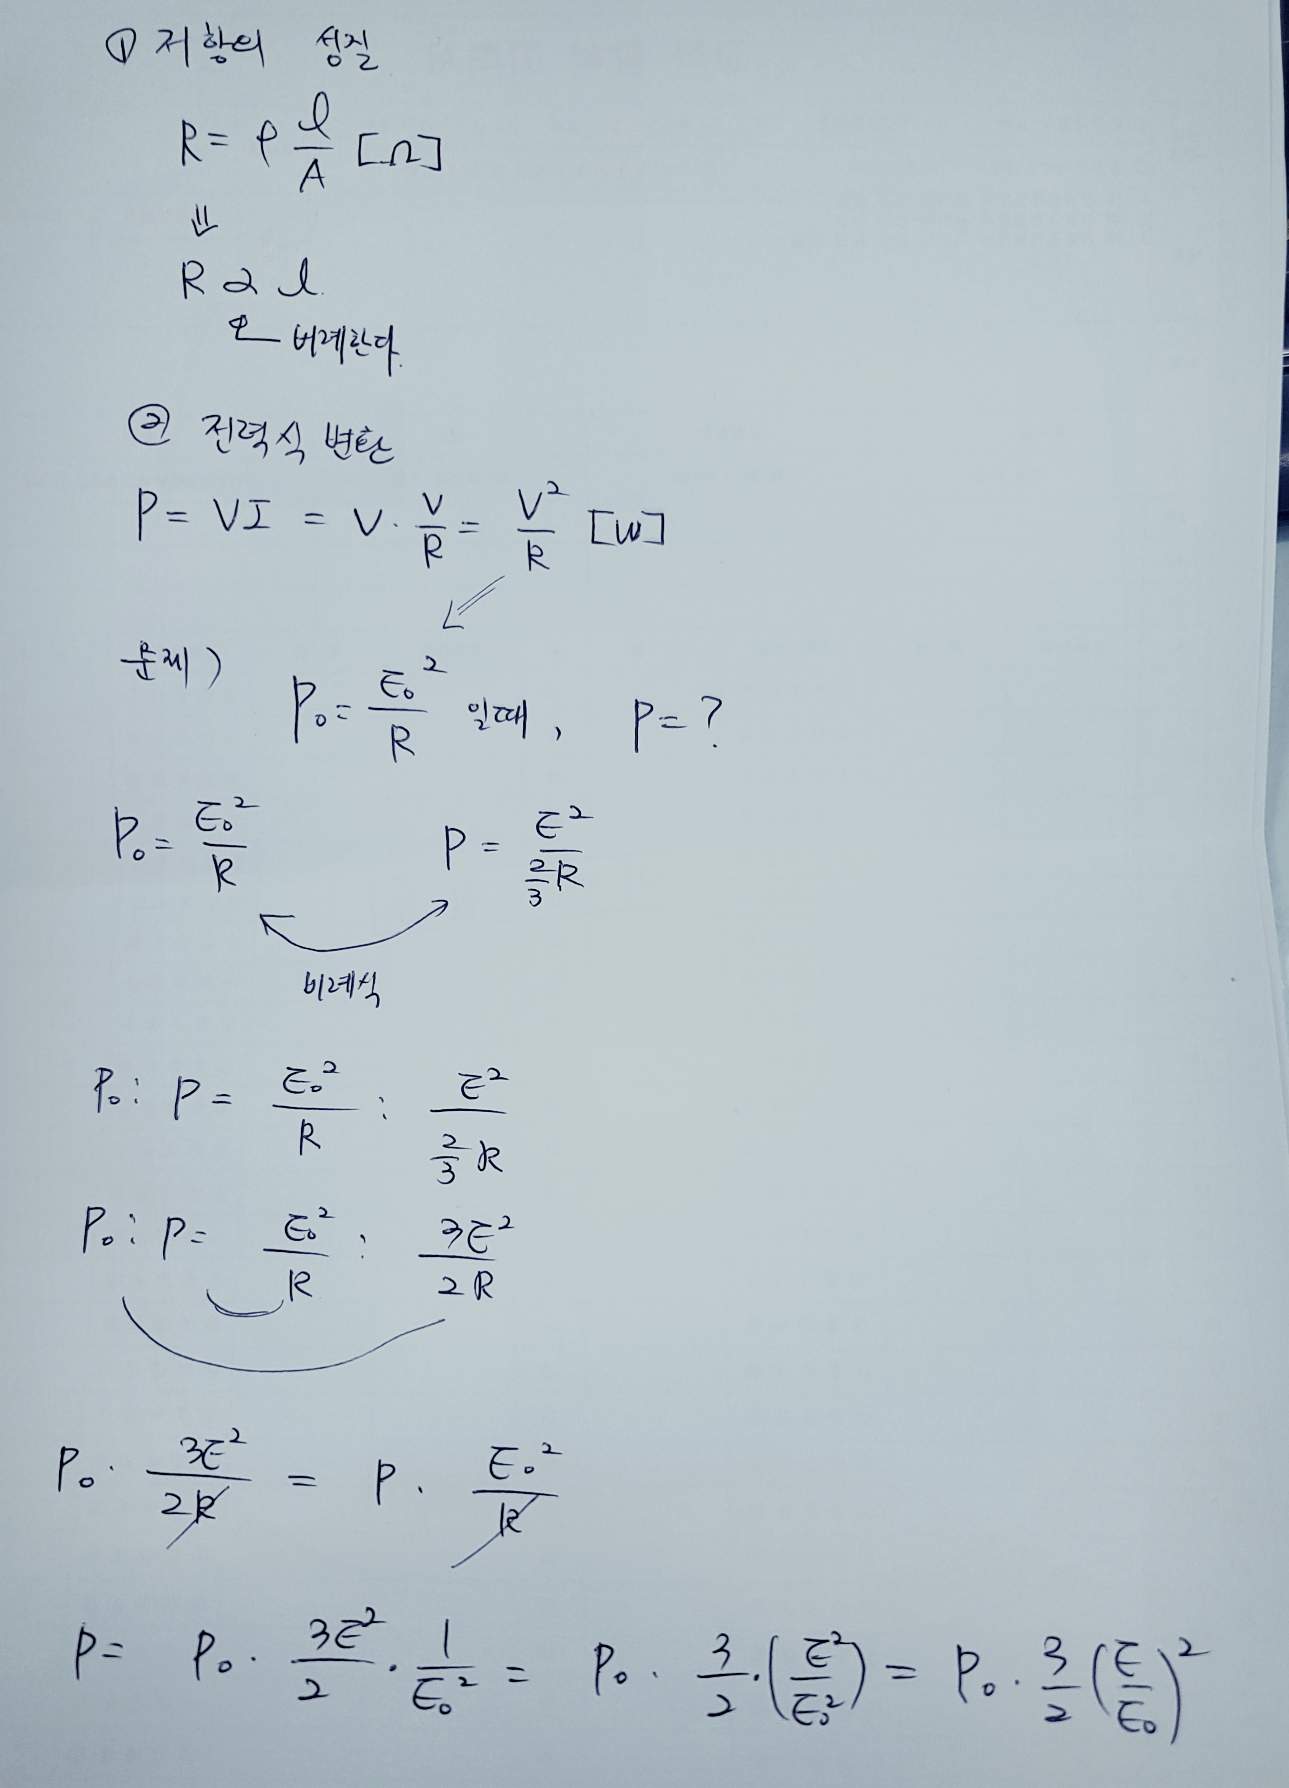 ① 저항의 성질
R = ρ l/A [Ω]
⇓
R ∝ l.
비례한다.
② 전력식 변환
P = VI = V · V/R = V²/R [W]
문제) P₀ = E₀²/R 일때, P = ?
P₀ = E₀²/R P = E²/(2/3 R)
비례식
P₀ : P = E₀²/R : E²/(2/3 R)
P₀ : P = E₀²/R : 3E²/2R
P₀ · 3E²/2R = P · E₀²/R
P = P₀ · 3E²/2 · 1/E₀² = P₀ · 3/2 · (E²/E₀²) = P₀ · 3/2 (E/E₀)²